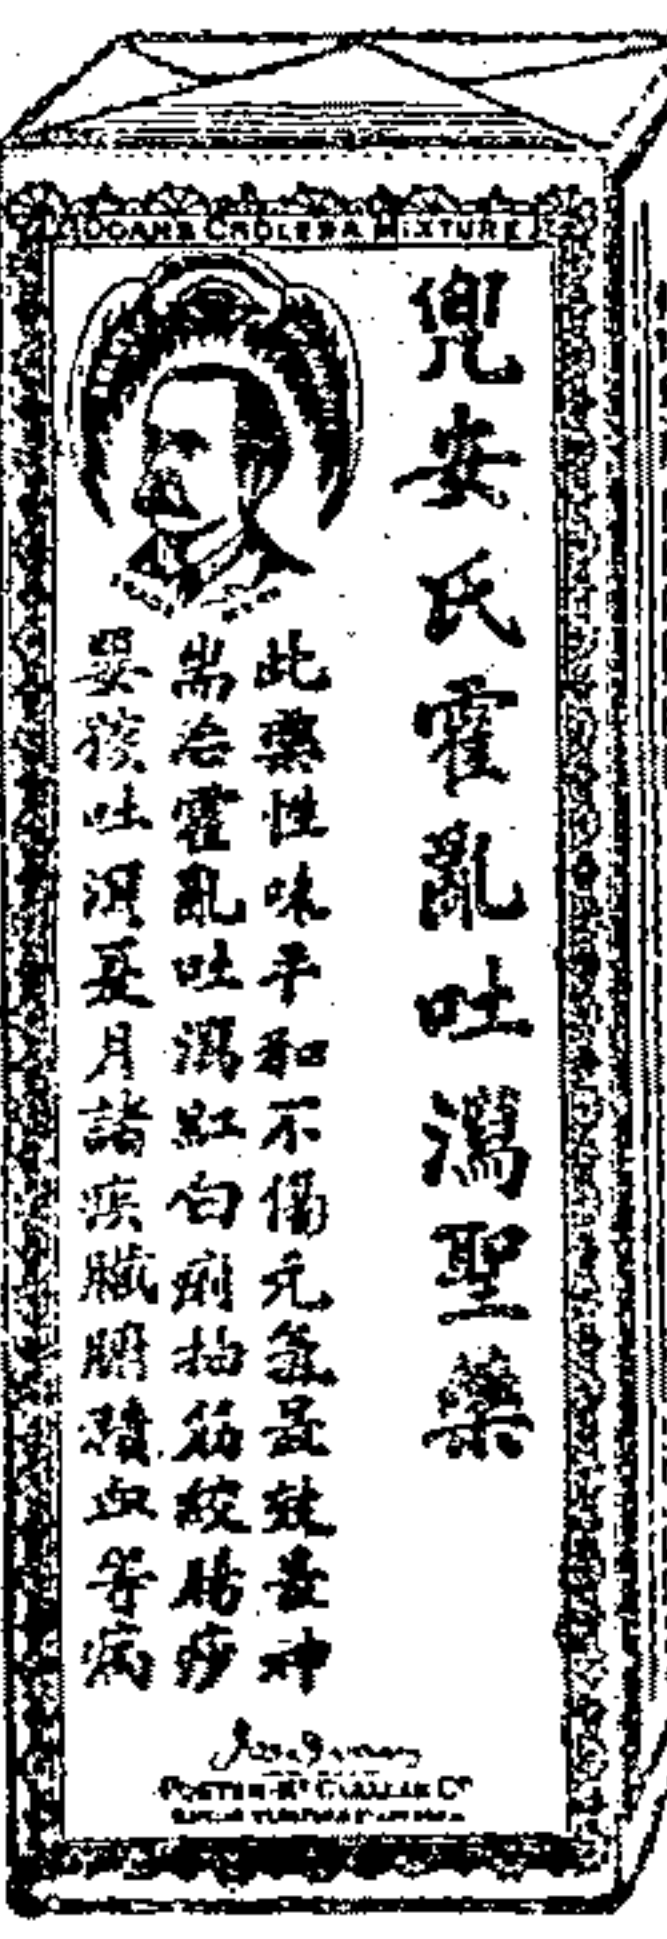 DOAN'S CHOLERA MIXTURE
兜安氏霍亂吐瀉聖藥
此藥性味平和不傷元氣最效最神
耑治霍亂吐瀉紅白痢抽筋絞腸痧
嬰孩吐瀉夏月諸疾臟腑積血等病
TRADE MARK
FOSTER-MCCLELLAN CO